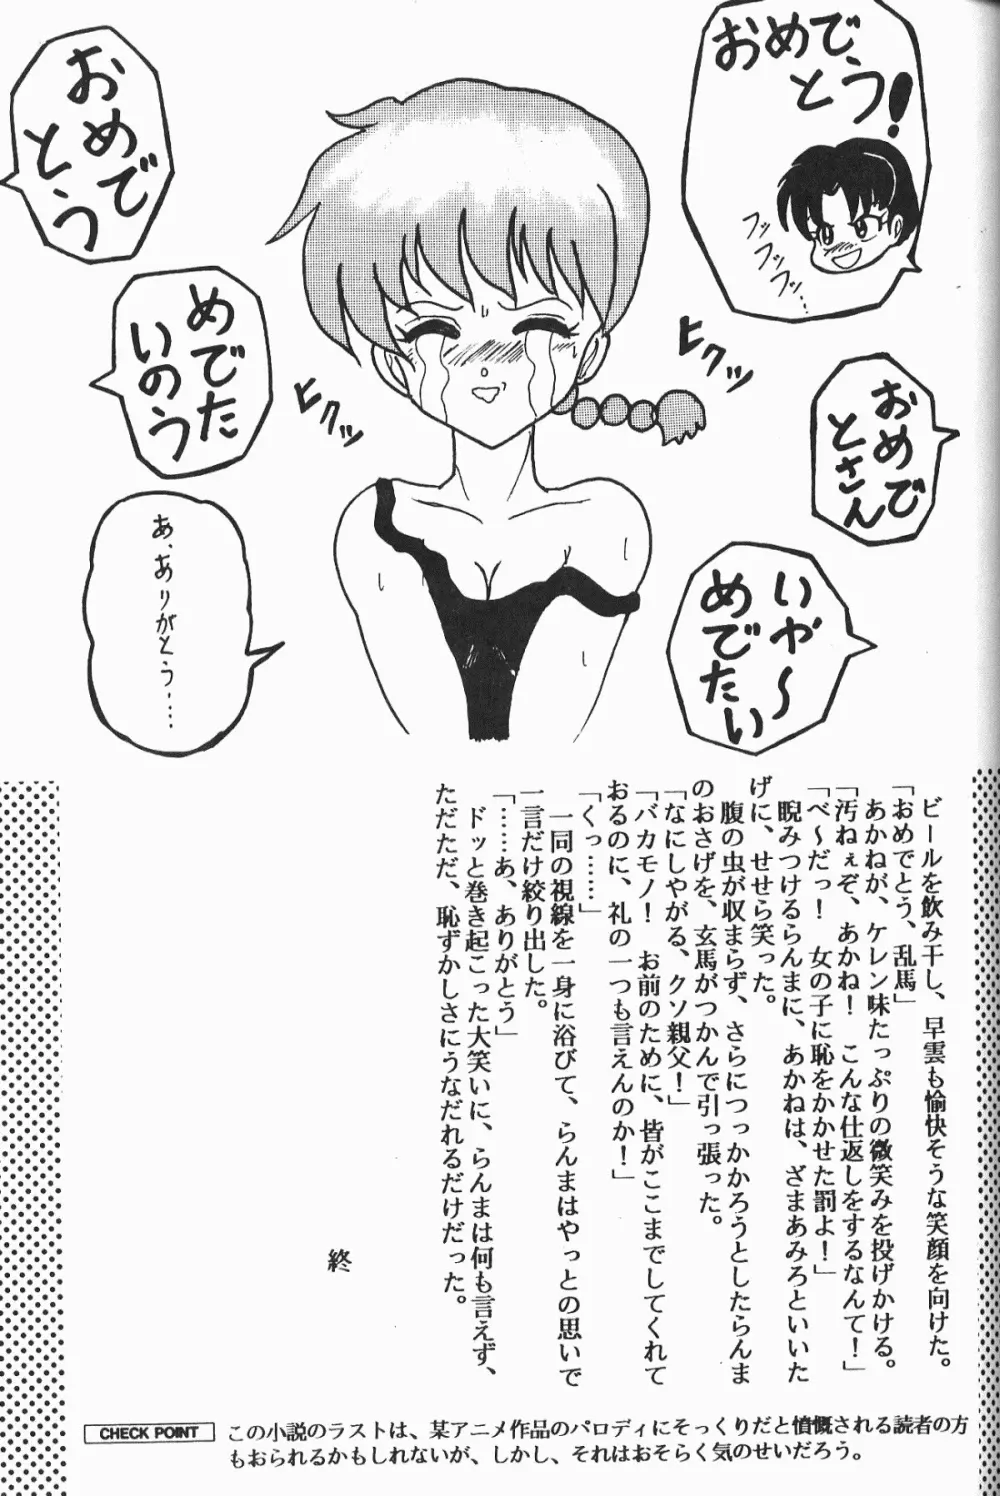 おめで
とう!
フッ
フッ
フッ…
おめで
とう
めでた
いのう
ヒクッ
ヒクッ
おめで
とさん
いや〜
めでたい
あ、ありがとう……
ビールを飲み干し、早雲も愉快そうな笑顔を向けた。
「おめでとう、乱馬」
あかねが、ケレン味たっぷりの微笑みを投げかける。
「汚ねぇぞ、あかね! こんな仕返しをするなんて!」
「べ〜だっ! 女の子に恥をかかせた罰よ!」
睨みつけるらんまに、あかねは、ざまあみろといいた
げに、せせら笑った。
腹の虫が収まらず、さらにつっかかろうとしたらんま
のおさげを、玄馬がつかんで引っ張った。
「なにしやがる、クソ親父!」
「バカモノ! お前のために、皆がここまでしてくれて
おるのに、礼の一つも言えんのか!」
「くっ……」
一同の視線を一身に浴びて、らんまはやっとの思いで
一言だけ絞り出した。
「……あ、ありがとう」
ドッと巻き起こった大笑いに、らんまは何も言えず、
ただただ、恥ずかしさにうなだれるだけだった。
終
CHECK POINT
この小説のラストは、某アニメ作品のパロディにそっくりだと憤慨される読者の方
もおられるかもしれないが、しかし、それはおそらく気のせいだろう。